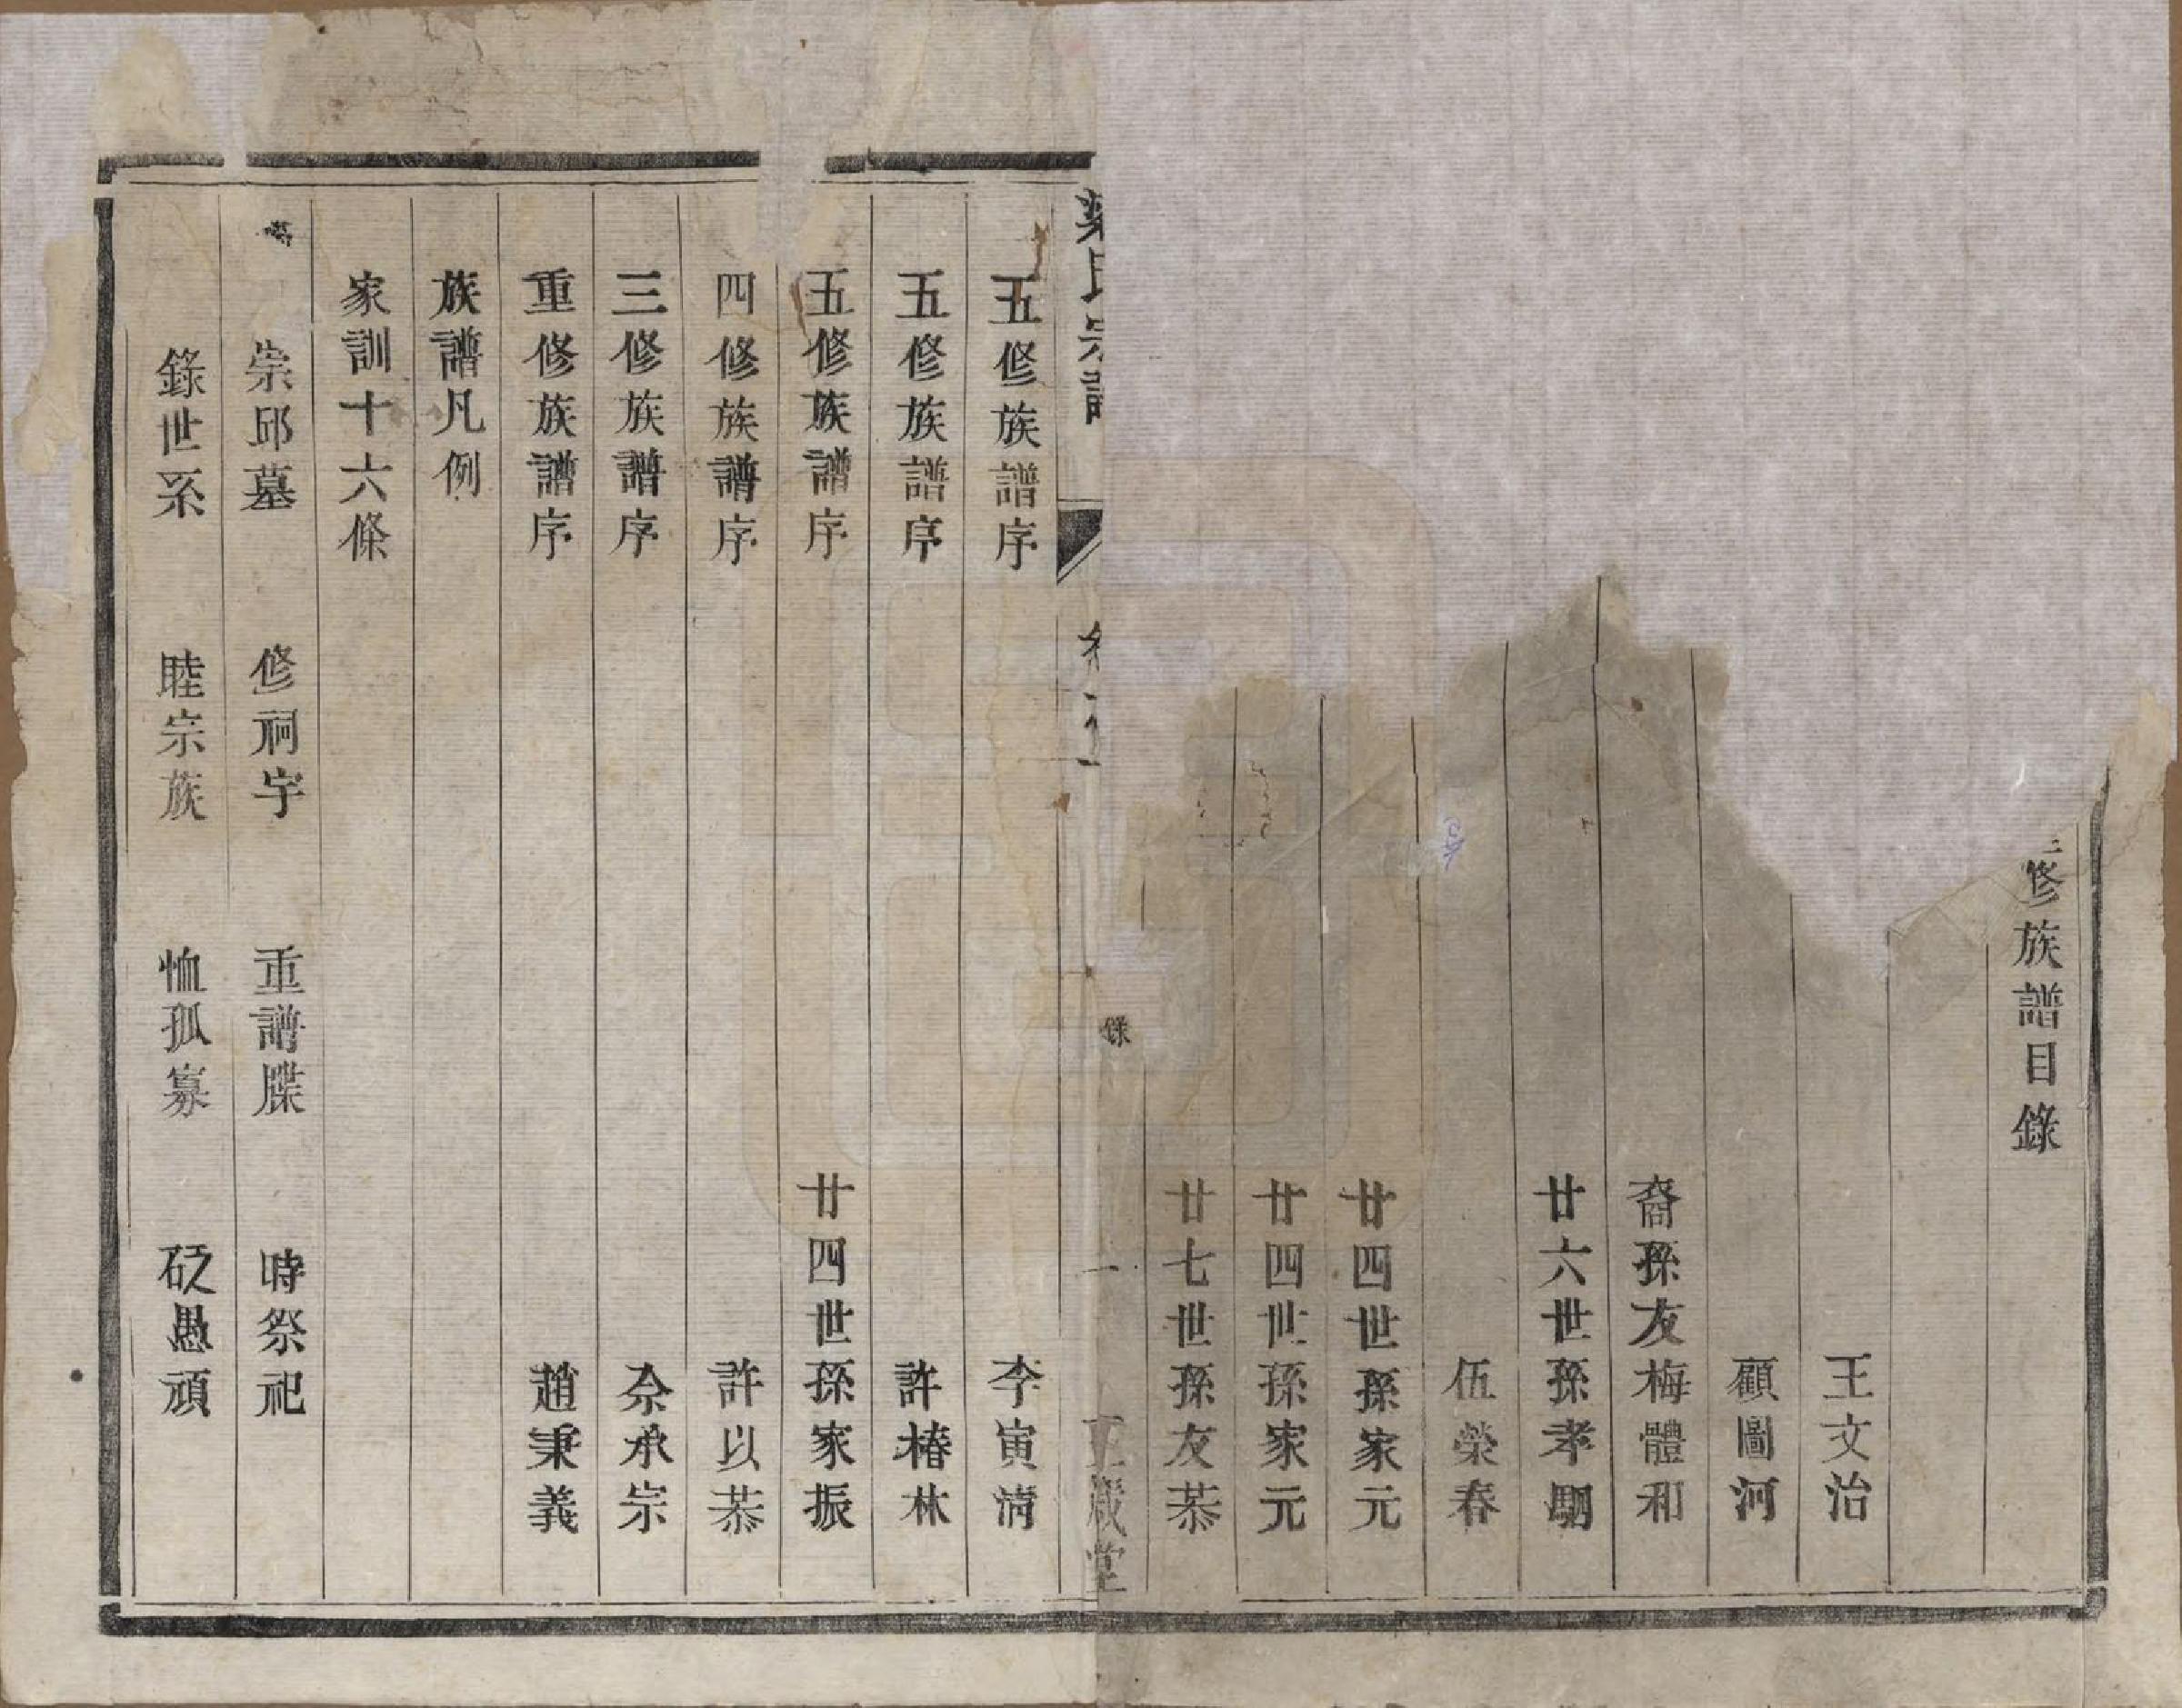 修族譜目錄
王文治
顧圖河
裔孫友梅體和
廿六世孫孝
伍榮春
廿四世孫家元
廿四世孫家元
廿七世孫友恭
氏宗譜 卷首上 錄 一 箴堂
五修族譜序 李寅清
五修族譜序 許椿林
五修族譜序 廿四世孫家振
四修族譜序 許以恭
三修族譜序 余承宗
重修族譜序 趙秉義
族譜凡例
家訓十六條
崇邱墓 修祠宇 重譜牒 時祭祀
錄世系 睦宗族 恤孤寡 砭愚頑